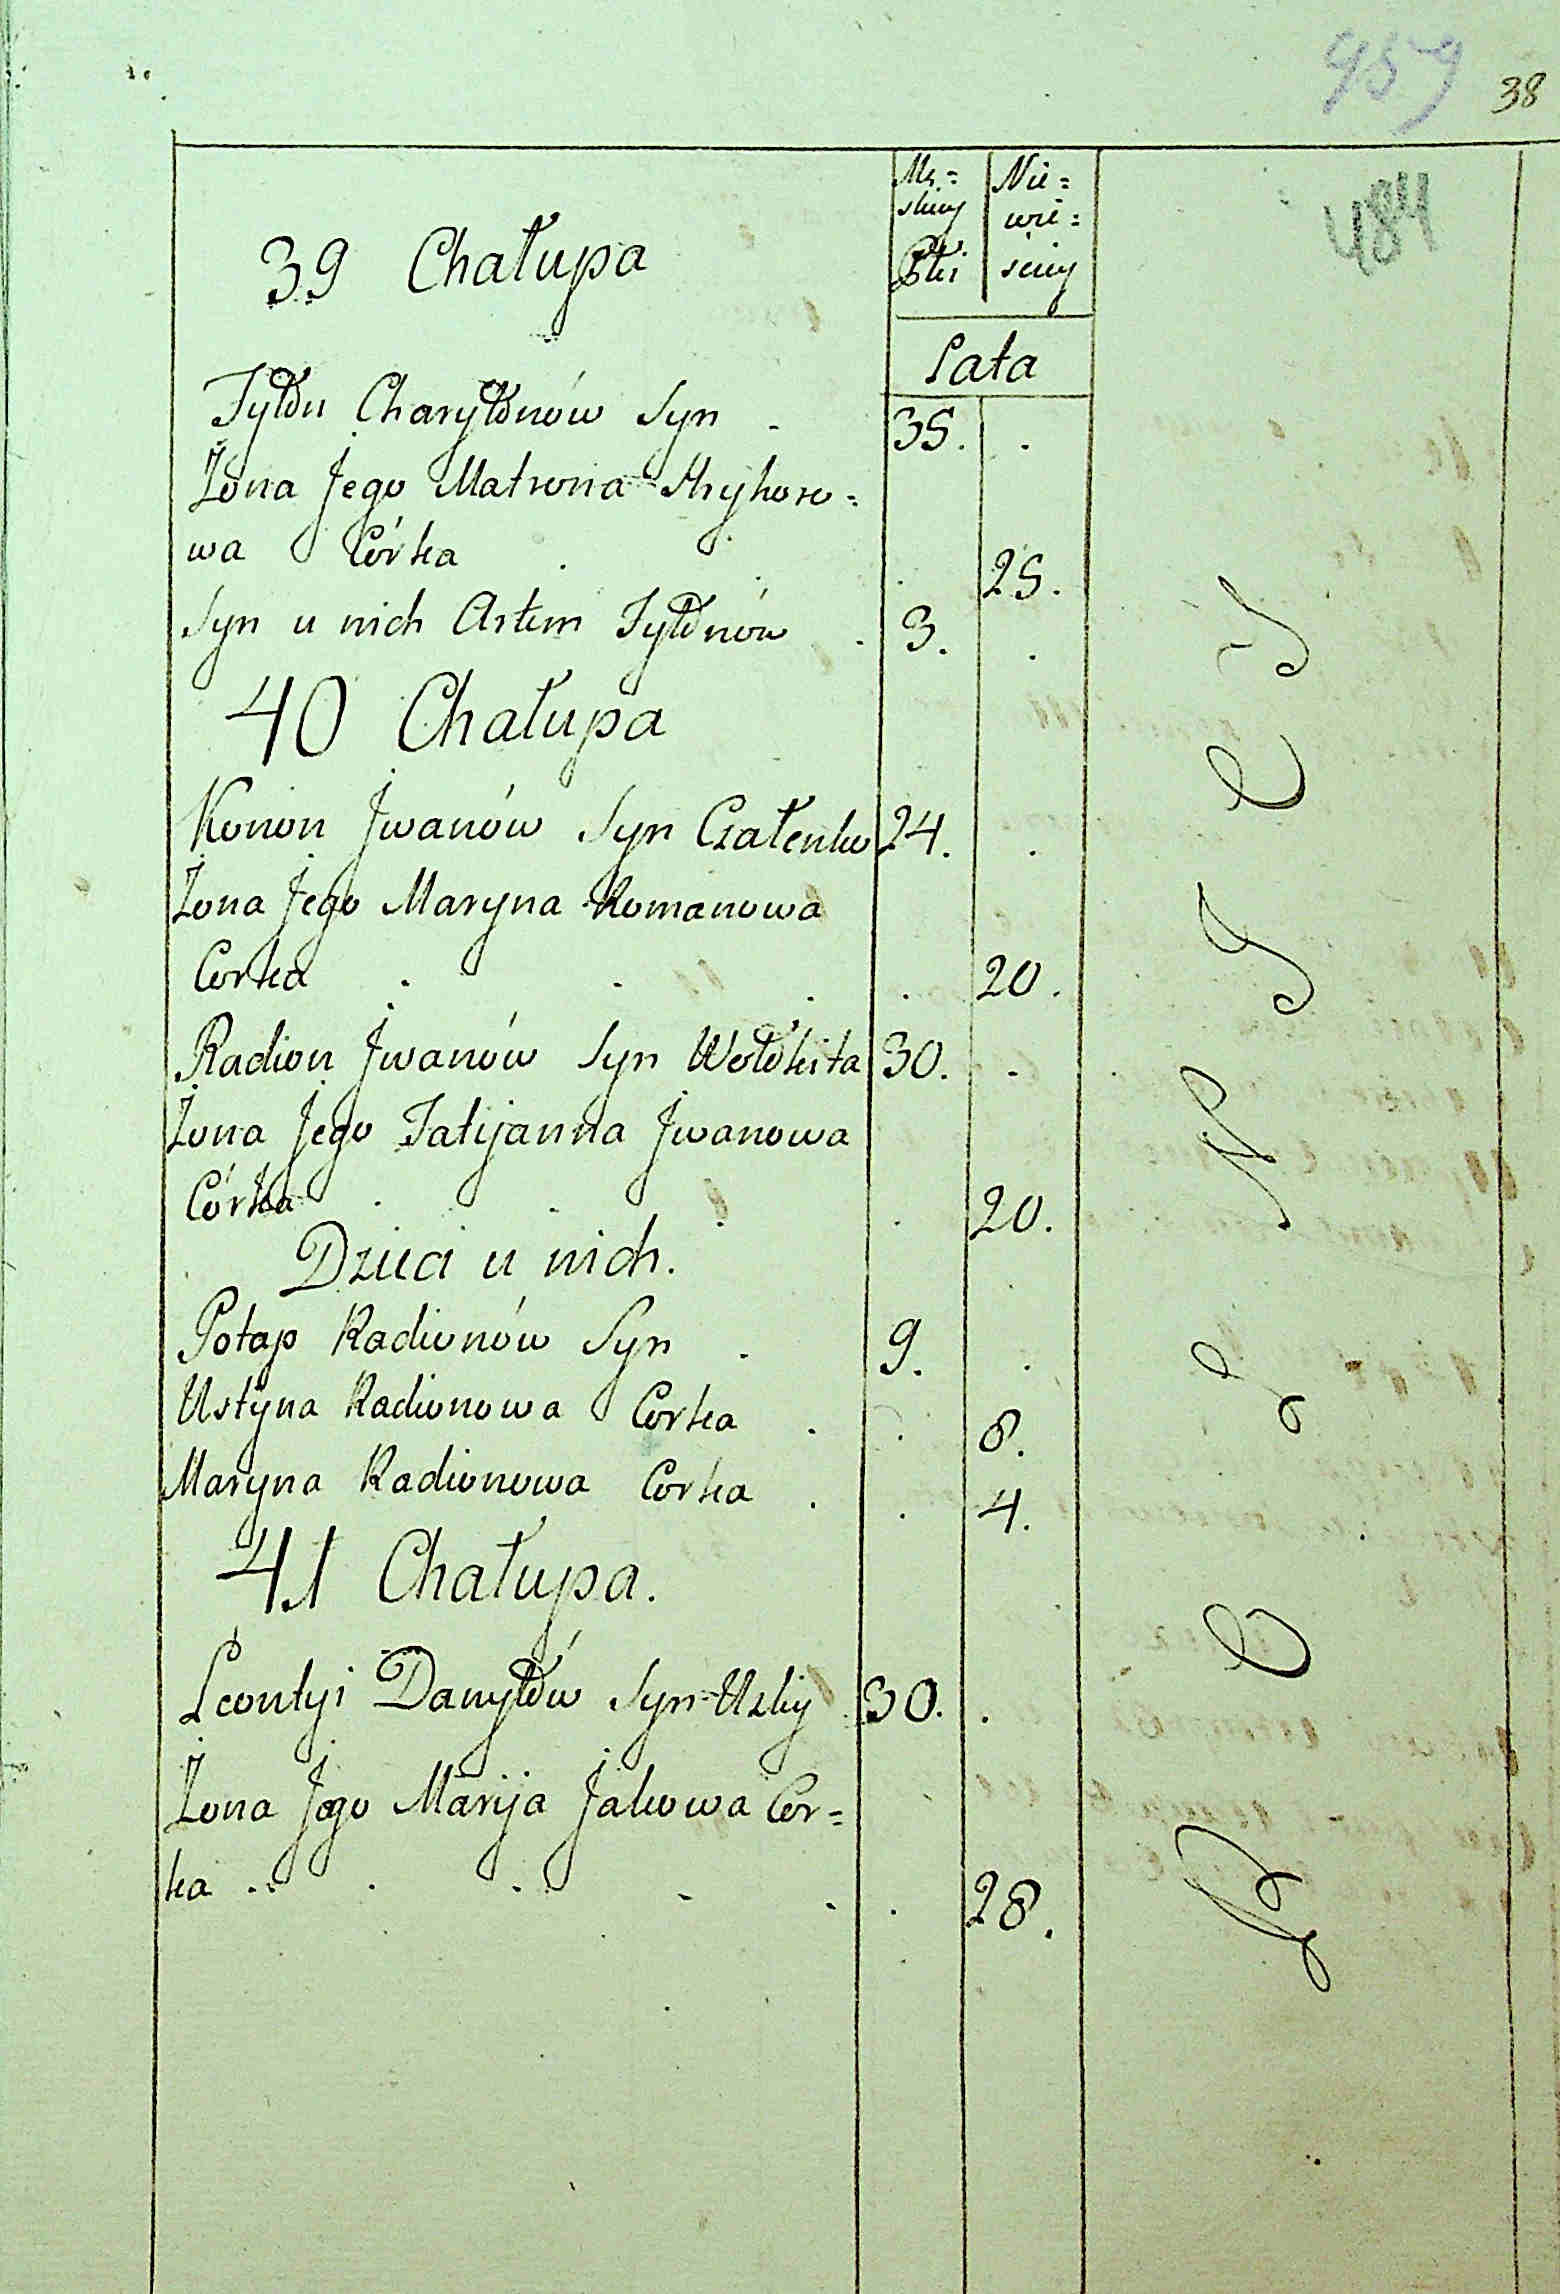 959 38
484
Mę= Nie=
skiey wie=
Płci sciey
39 Chałupa
Lata
Tyłon Charyłonów Syn 35.
Żona Jego Matrona Hryhoro=
wa Córka 25.
Syn u nich Artem Tyłonów 3.
40 Chałupa
Konon Jwanów Syn Czałenko 24.
Żona Jego Maryna Romanowa
Corka 20.
Radion Jwanów Syn Wołokita 30.
Żona Jego Tatijanna Jwanowa
Córka 20.
Dzieci u nich.
Potap Radionów Syn 9.
Ustyna Radionowa Corka 8.
Maryna Radionowa Corka 4.
41 Chałupa.
Leontyi Danyłów Syn Uzkiy 30.
Żona Jego Marija Jakowa Cor=
ka 28.